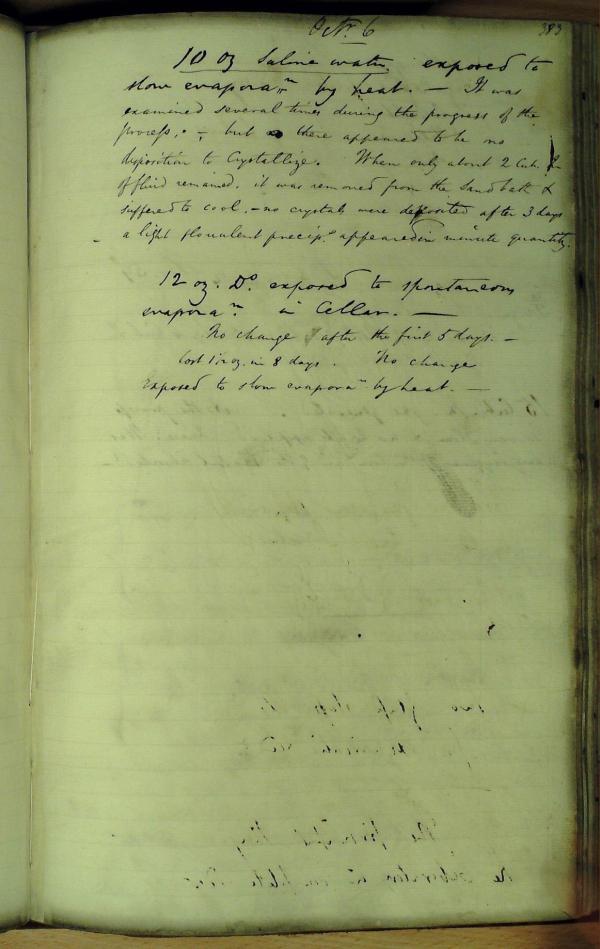 Octr. 6
383
10 oz Saline water exposed to
slow evapora.n by heat. — It was
examined several times during the progress of the
process, - but there appeared to be no
disposition to Crystallize. When only about 2 Cub. In
of fluid remained, it was removed from the Sand bath &
suffered to cool, - no crystals were deposited after 3 days
a light flouulent precip.e appeared in minute quantity.
12 oz. Do. exposed to spontaneous
evapora.n in Cellar. —
No change after the first 5 days. —
lost oz. in 8 days. No change
Exposed to slow evapora.n by heat. —